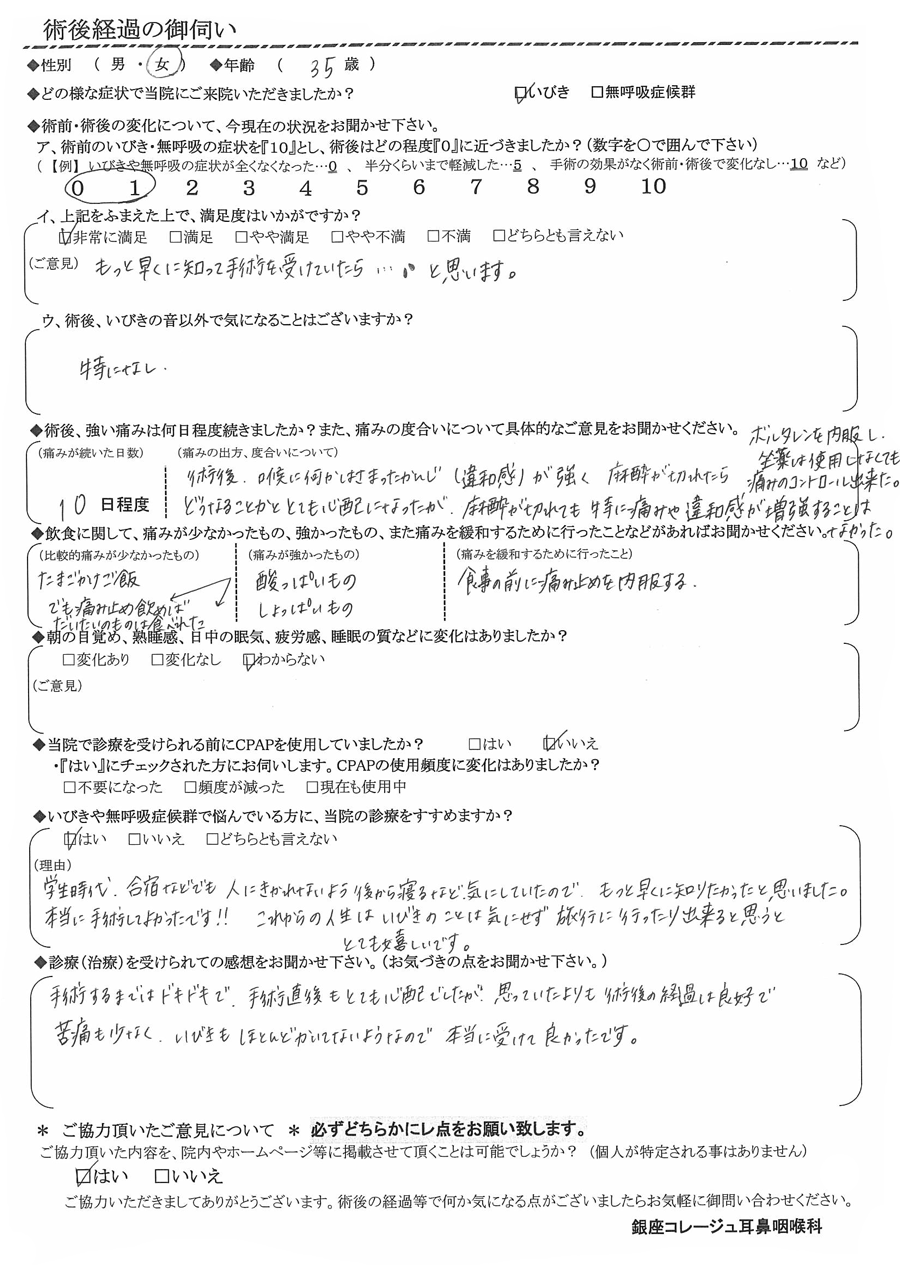 術後経過の御伺い
◆性別 ( 男 ・ 女 ) ◆年齢 ( 35 歳 )
◆どの様な症状で当院にご来院いただきましたか? ☑いびき □無呼吸症候群
◆術前・術後の変化について、今現在の状況をお聞かせ下さい。
ア、術前のいびき・無呼吸の症状を『10』とし、術後はどの程度『0』に近づきましたか?(数字を〇で囲んで下さい)
(【例】いびきや無呼吸の症状が全くなくなった…0 、 半分くらいまで軽減した…5 、 手術の効果がなく術前・術後で変化なし…10 など)
0 1 2 3 4 5 6 7 8 9 10
イ、上記をふまえた上で、満足度はいかがですか?
☑非常に満足 □満足 □やや満足 □やや不満 □不満 □どちらとも言えない
(ご意見) もっと早くに知って手術を受けていたら…。と思います。
ウ、術後、いびきの音以外で気になることはございますか?
特になし.
◆術後、強い痛みは何日程度続きましたか?また、痛みの度合いについて具体的なご意見をお聞かせください。
(痛みが続いた日数) (痛みの出方、度合いについて)
術後、口喉に何かはさまったかんじ (違和感) が強く 麻酔が切れたら
10 日程度 どうなることかととても心配になったが、麻酔が切れても特に痛みや違和感が増強することは
なかった。
ボルタレンを内服し、
坐薬は使用しなくても
痛みのコントロール出来た。
◆飲食に関して、痛みが少なかったもの、強かったもの、また痛みを緩和するために行ったことなどがあればお聞かせください。
(比較的痛みが少なかったもの) (痛みが強かったもの) (痛みを緩和するために行ったこと)
たまごかけご飯 酸っぱいもの 食事の前に痛み止めを内服する.
でも痛み止め飲めば しょっぱいもの
だいたいのものは食べれた
◆朝の目覚め、熟睡感、日中の眠気、疲労感、睡眠の質などに変化はありましたか?
□変化あり □変化なし ☑わからない
(ご意見)
◆当院で診療を受けられる前にCPAPを使用していましたか? □はい ☑いいえ
・『はい』にチェックされた方にお伺いします。CPAPの使用頻度に変化はありましたか?
□不要になった □頻度が減った □現在も使用中
◆いびきや無呼吸症候群で悩んでいる方に、当院の診療をすすめますか?
☑はい □いいえ □どちらとも言えない
(理由)
学生時代、合宿などでも人にきかれないよう後から寝るなど、気にしていたので、もっと早くに知りたかったと思いました。
本当に手術してよかったです!! これからの人生はいびきのことは気にせず旅行に行ったり出来ると思うと
とても嬉しいです。
◆診療(治療)を受けられての感想をお聞かせ下さい。(お気づきの点をお聞かせ下さい。)
手術するまではドキドキで、手術直後もとても心配でしたが、思っていたよりも術後の経過は良好で
苦痛も少なく、いびきもほとんどかいてないようなので本当に受けて良かったです。
* ご協力頂いたご意見について * 必ずどちらかにレ点をお願い致します。
ご協力頂いた内容を、院内やホームページ等に掲載させて頂くことは可能でしょうか? (個人が特定される事はありません)
☑はい □いいえ
ご協力いただきましてありがとうございます。術後の経過等で何か気になる点がございましたらお気軽に御問い合わせください。
銀座コレージュ耳鼻咽喉科